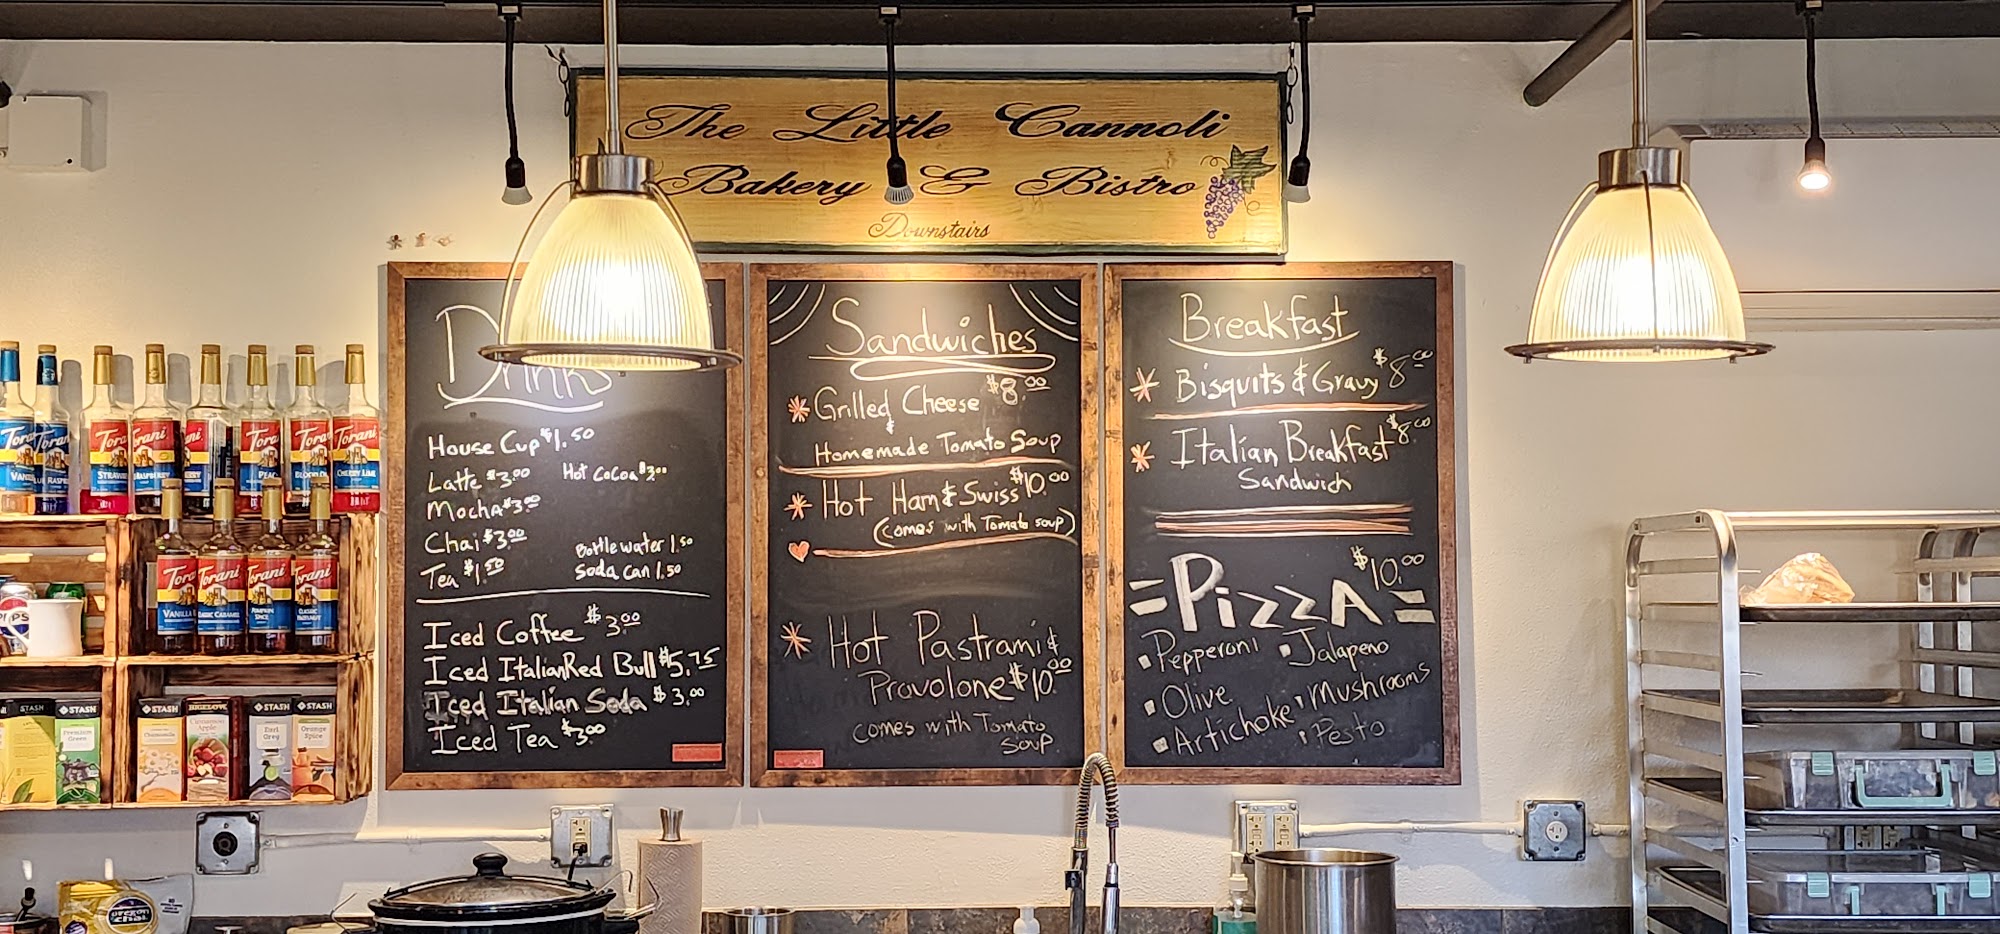 The Little Cannoli
Bakery & Bistro
Downstairs
Drinks
House Cup $1.50
Latte $3.00 Hot Cocoa $3.00
Mocha $3.00
Chai $3.00
Bottle water 1.50
Tea $1.50 Soda can 1.50
Iced Coffee $3.00
Iced Italian Red Bull $5.75
Iced Italian Soda $3.00
Iced Tea $3.00
Sandwiches
Grilled Cheese $8.00
&
Homemade Tomato Soup
Hot Ham & Swiss $10.00
(comes with Tomato soup)
Hot Pastrami &
Provolone $10.00
comes with Tomato
Soup
Breakfast
Bisquits & Gravy $8.00
Italian Breakfast $8.00
Sandwich
=PizzA= $10.00
Pepperoni Jalapeno
Olive Mushrooms
Artichoke Pesto
Torani
Torani
Torani
Torani
Torani
Torani
Torani
CHERRY LIME
Torani
Torani
Torani
Torani
VANILLA
CLASSIC CARAMEL
PUMPKIN
SPICE
CLASSIC
HAZELNUT
STASH
Premium
Green
STASH
Chamomile
BIGELOW
Cinnamon
Apple
STASH
Earl
Grey
STASH
Orange
Spice
oregon
chai